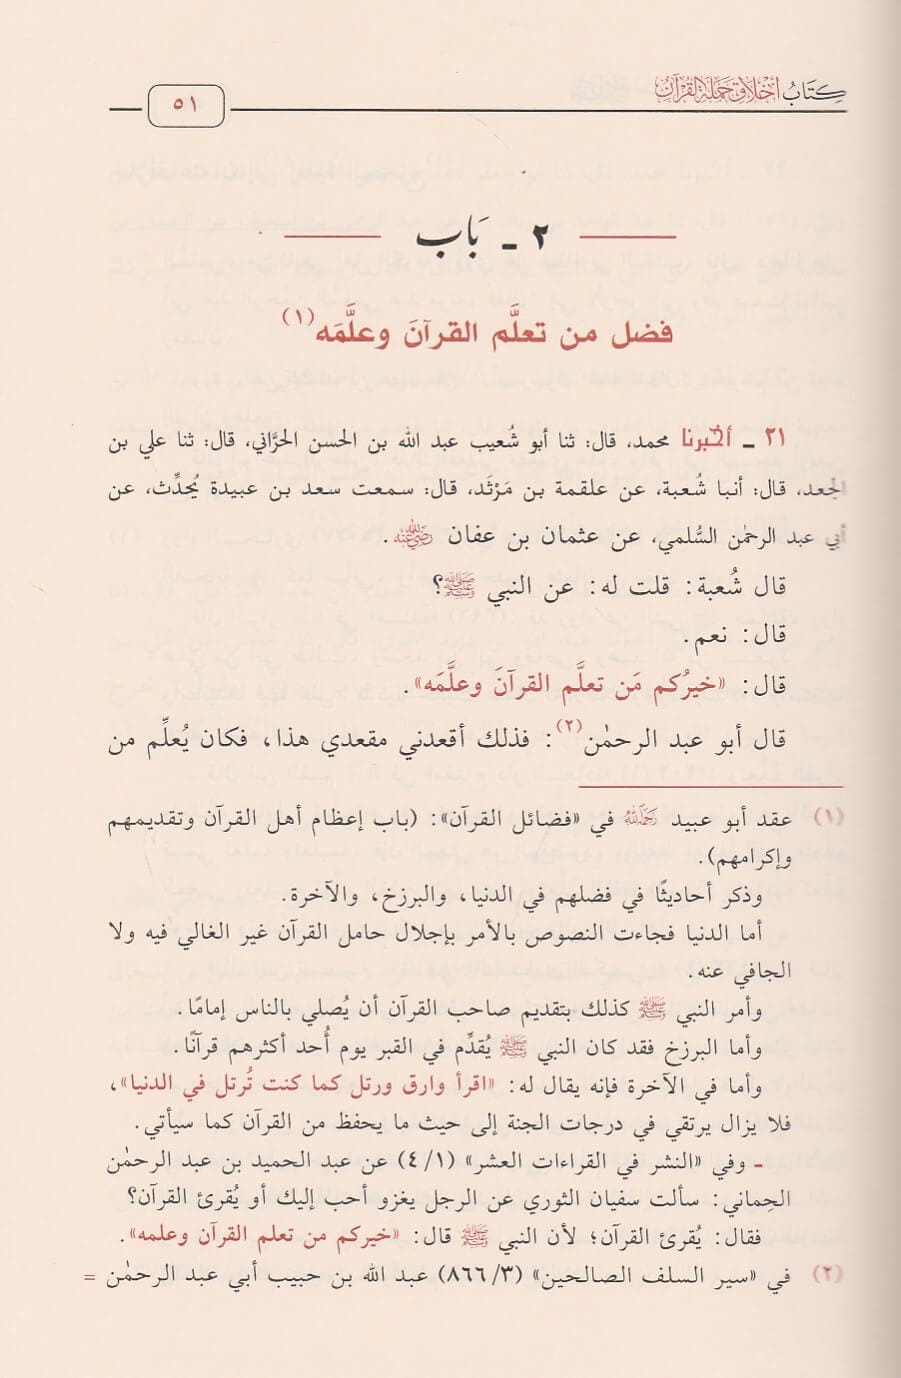 كتاب أخلاق حملة القرآن
٥١
٢ - باب
فضل من تعلَّم القرآنَ وعلَّمَه(١)
٢١ - أخبرنا محمد، قال: ثنا أبو شُعيب عبد الله بن الحسن الحرَّاني، قال: ثنا علي بن
الجعد، قال: أنبا شُعبة، عن علقمة بن مَرْثَد، قال: سمعت سعد بن عبيدة يُحدِّث، عن
أبي عبد الرحمٰن السُّلمي، عن عثمان بن عفان رضي الله عنه.
قال شُعبة: قلت له: عن النبي ﷺ؟
قال: نعم.
قال: «خيرُكم مَن تعلَّم القرآنَ وعلَّمَه».
قال أبو عبد الرحمٰن(٢): فذلك أقعدني مقعدي هذا، فكان يُعلِّم من
(١) عقد أبو عبيد رحمه الله في «فضائل القرآن»: (باب إعظام أهل القرآن وتقديمهم
وإكرامهم).
وذكر أحاديثًا في فضلهم في الدنيا، والبرزخ، والآخرة.
أما الدنيا فجاءت النصوص بالأمر بإجلال حامل القرآن غير الغالي فيه ولا
الجافي عنه.
وأمر النبي ﷺ كذلك بتقديم صاحب القرآن أن يُصلي بالناس إمامًا.
وأما البرزخ فقد كان النبي ﷺ يُقدِّم في القبر يوم أُحد أكثرهم قرآنًا.
وأما في الآخرة فإنه يقال له: «اقرأ وارق ورتل كما كنت تُرتل في الدنيا»،
فلا يزال يرتقي في درجات الجنة إلى حيث ما يحفظ من القرآن كما سيأتي.
- وفي «النشر في القراءات العشر» (٤/١) عن عبد الحميد بن عبد الرحمٰن
الحِماني: سألت سفيان الثوري عن الرجل يغزو أحب إليك أو يُقرئ القرآن؟
فقال: يُقرئ القرآن؛ لأن النبي ﷺ قال: «خيركم من تعلم القرآن وعلمه».
(٢) في «سير السلف الصالحين» (٨٦٦/٣) عبد الله بن حبيب أبي عبد الرحمٰن =